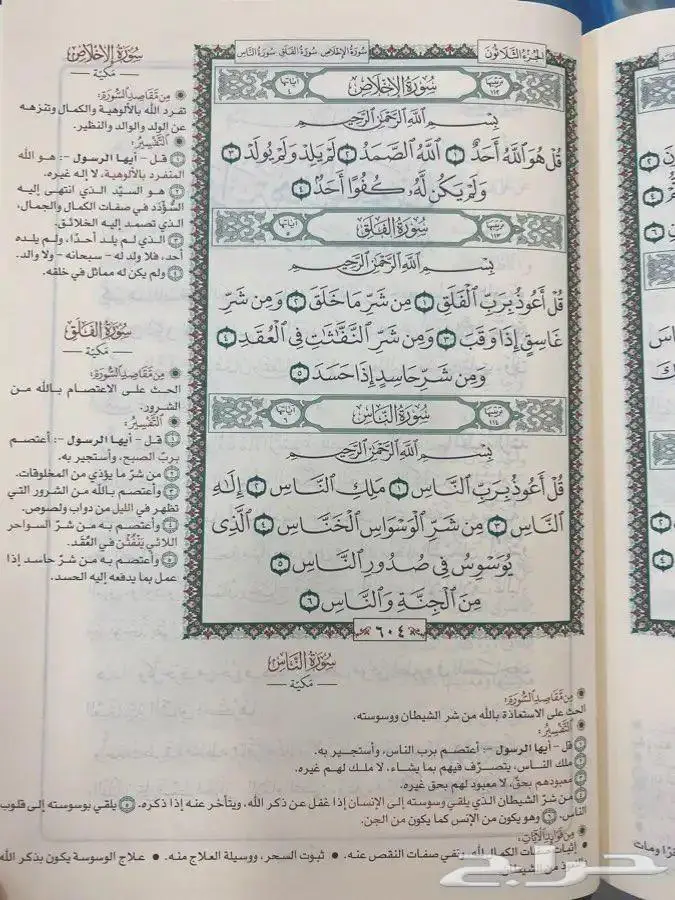 الجزء الثلاثون
سورة الإخلاص سورة الفلق سورة الناس
ترتيبها ١١٢
سورة الإخلاص
آياتها ٤
بِسْمِ ٱللَّهِ ٱلرَّحْمَٰنِ ٱلرَّحِيمِ
قُلْ هُوَ ٱللَّهُ أَحَدٌ ١ ٱللَّهُ ٱلصَّمَدُ ٢ لَمْ يَلِدْ وَلَمْ يُولَدْ ٣
وَلَمْ يَكُن لَّهُۥ كُفُوًا أَحَدٌۢ ٤
ترتيبها ١١٣
سورة الفلق
آياتها ٥
بِسْمِ ٱللَّهِ ٱلرَّحْمَٰنِ ٱلرَّحِيمِ
قُلْ أَعُوذُ بِرَبِّ ٱلْفَلَقِ ١ مِن شَرِّ مَا خَلَقَ ٢ وَمِن شَرِّ
غَاسِقٍ إِذَا وَقَبَ ٣ وَمِن شَرِّ ٱلنَّفَّٰثَٰتِ فِى ٱلْعُقَدِ ٤
وَمِن شَرِّ حَاسِدٍ إِذَا حَسَدَ ٥
ترتيبها ١١٤
سورة الناس
آياتها ٦
بِسْمِ ٱللَّهِ ٱلرَّحْمَٰنِ ٱلرَّحِيمِ
قُلْ أَعُوذُ بِرَبِّ ٱلنَّاسِ ١ مَلِكِ ٱلنَّاسِ ٢ إِلَٰهِ
ٱلنَّاسِ ٣ مِن شَرِّ ٱلْوَسْوَاسِ ٱلْخَنَّاسِ ٤ ٱلَّذِى
يُوَسْوِسُ فِى صُدُورِ ٱلنَّاسِ ٥
مِنَ ٱلْجِنَّةِ وَٱلنَّاسِ ٦
٦٠٤
سورة الإخلاص
— مكية —
من مقاصد السورة:
تفرد الله بالألوهية والكمال وتنزهه
عن الولد والوالد والنظير.
التفسير:
١ قل - أيها الرسول -: هو الله
المتفرد بالألوهية، لا إله غيره.
٢ هو السيّد الذي انتهى إليه
السُّؤدَد في صفات الكمال والجمال،
الذي تصمد إليه الخلائق.
٣ الذي لم يلد أحدًا، ولم يلده
أحد، فلا ولد له - سبحانه - ولا والد.
٤ ولم يكن له مماثل في خلقه.
سورة الفلق
— مكية —
من مقاصد السورة:
الحث على الاعتصام بالله من
الشرور.
التفسير:
١ قل - أيها الرسول -: أعتصم
بربّ الصبح، وأستجير به.
٢ من شرّ ما يؤذي من المخلوقات.
٣ وأعتصم بالله من الشرور التي
تظهر في الليل من دواب ولصوص.
٤ وأعتصم به من شرّ السواحر
اللائي يَنْفُثْن في العُقَد.
٥ وأعتصم به من شرّ حاسد إذا
عمل بما يدفعه إليه الحسد.
سورة الناس
— مكية —
من مقاصد السورة:
الحث على الاستعاذة بالله من شر الشيطان ووسوسته.
التفسير:
١ قل - أيها الرسول -: أعتصم برب الناس، وأستجير به.
٢ ملك الناس، يتصرّف فيهم بما يشاء، لا ملك لهم غيره.
٣ معبودهم بحقّ، لا معبود لهم بحق غيره.
٤ من شرّ الشيطان الذي يلقي وسوسته إلى الإنسان إذا غفل عن ذكر الله، ويتأخر عنه إذا ذكره. ٥ يلقي بوسوسته إلى قلوب
الناس. ٦ وهو يكون من الإنس كما يكون من الجن.
من فوائد الآيات:
• إثبات صفات الكمال لله، ونفي صفات النقص عنه. • ثبوت السحر، ووسيلة العلاج منه. • علاج الوسوسة يكون بذكر الله
والتعوذ من الشيطان.
حراج